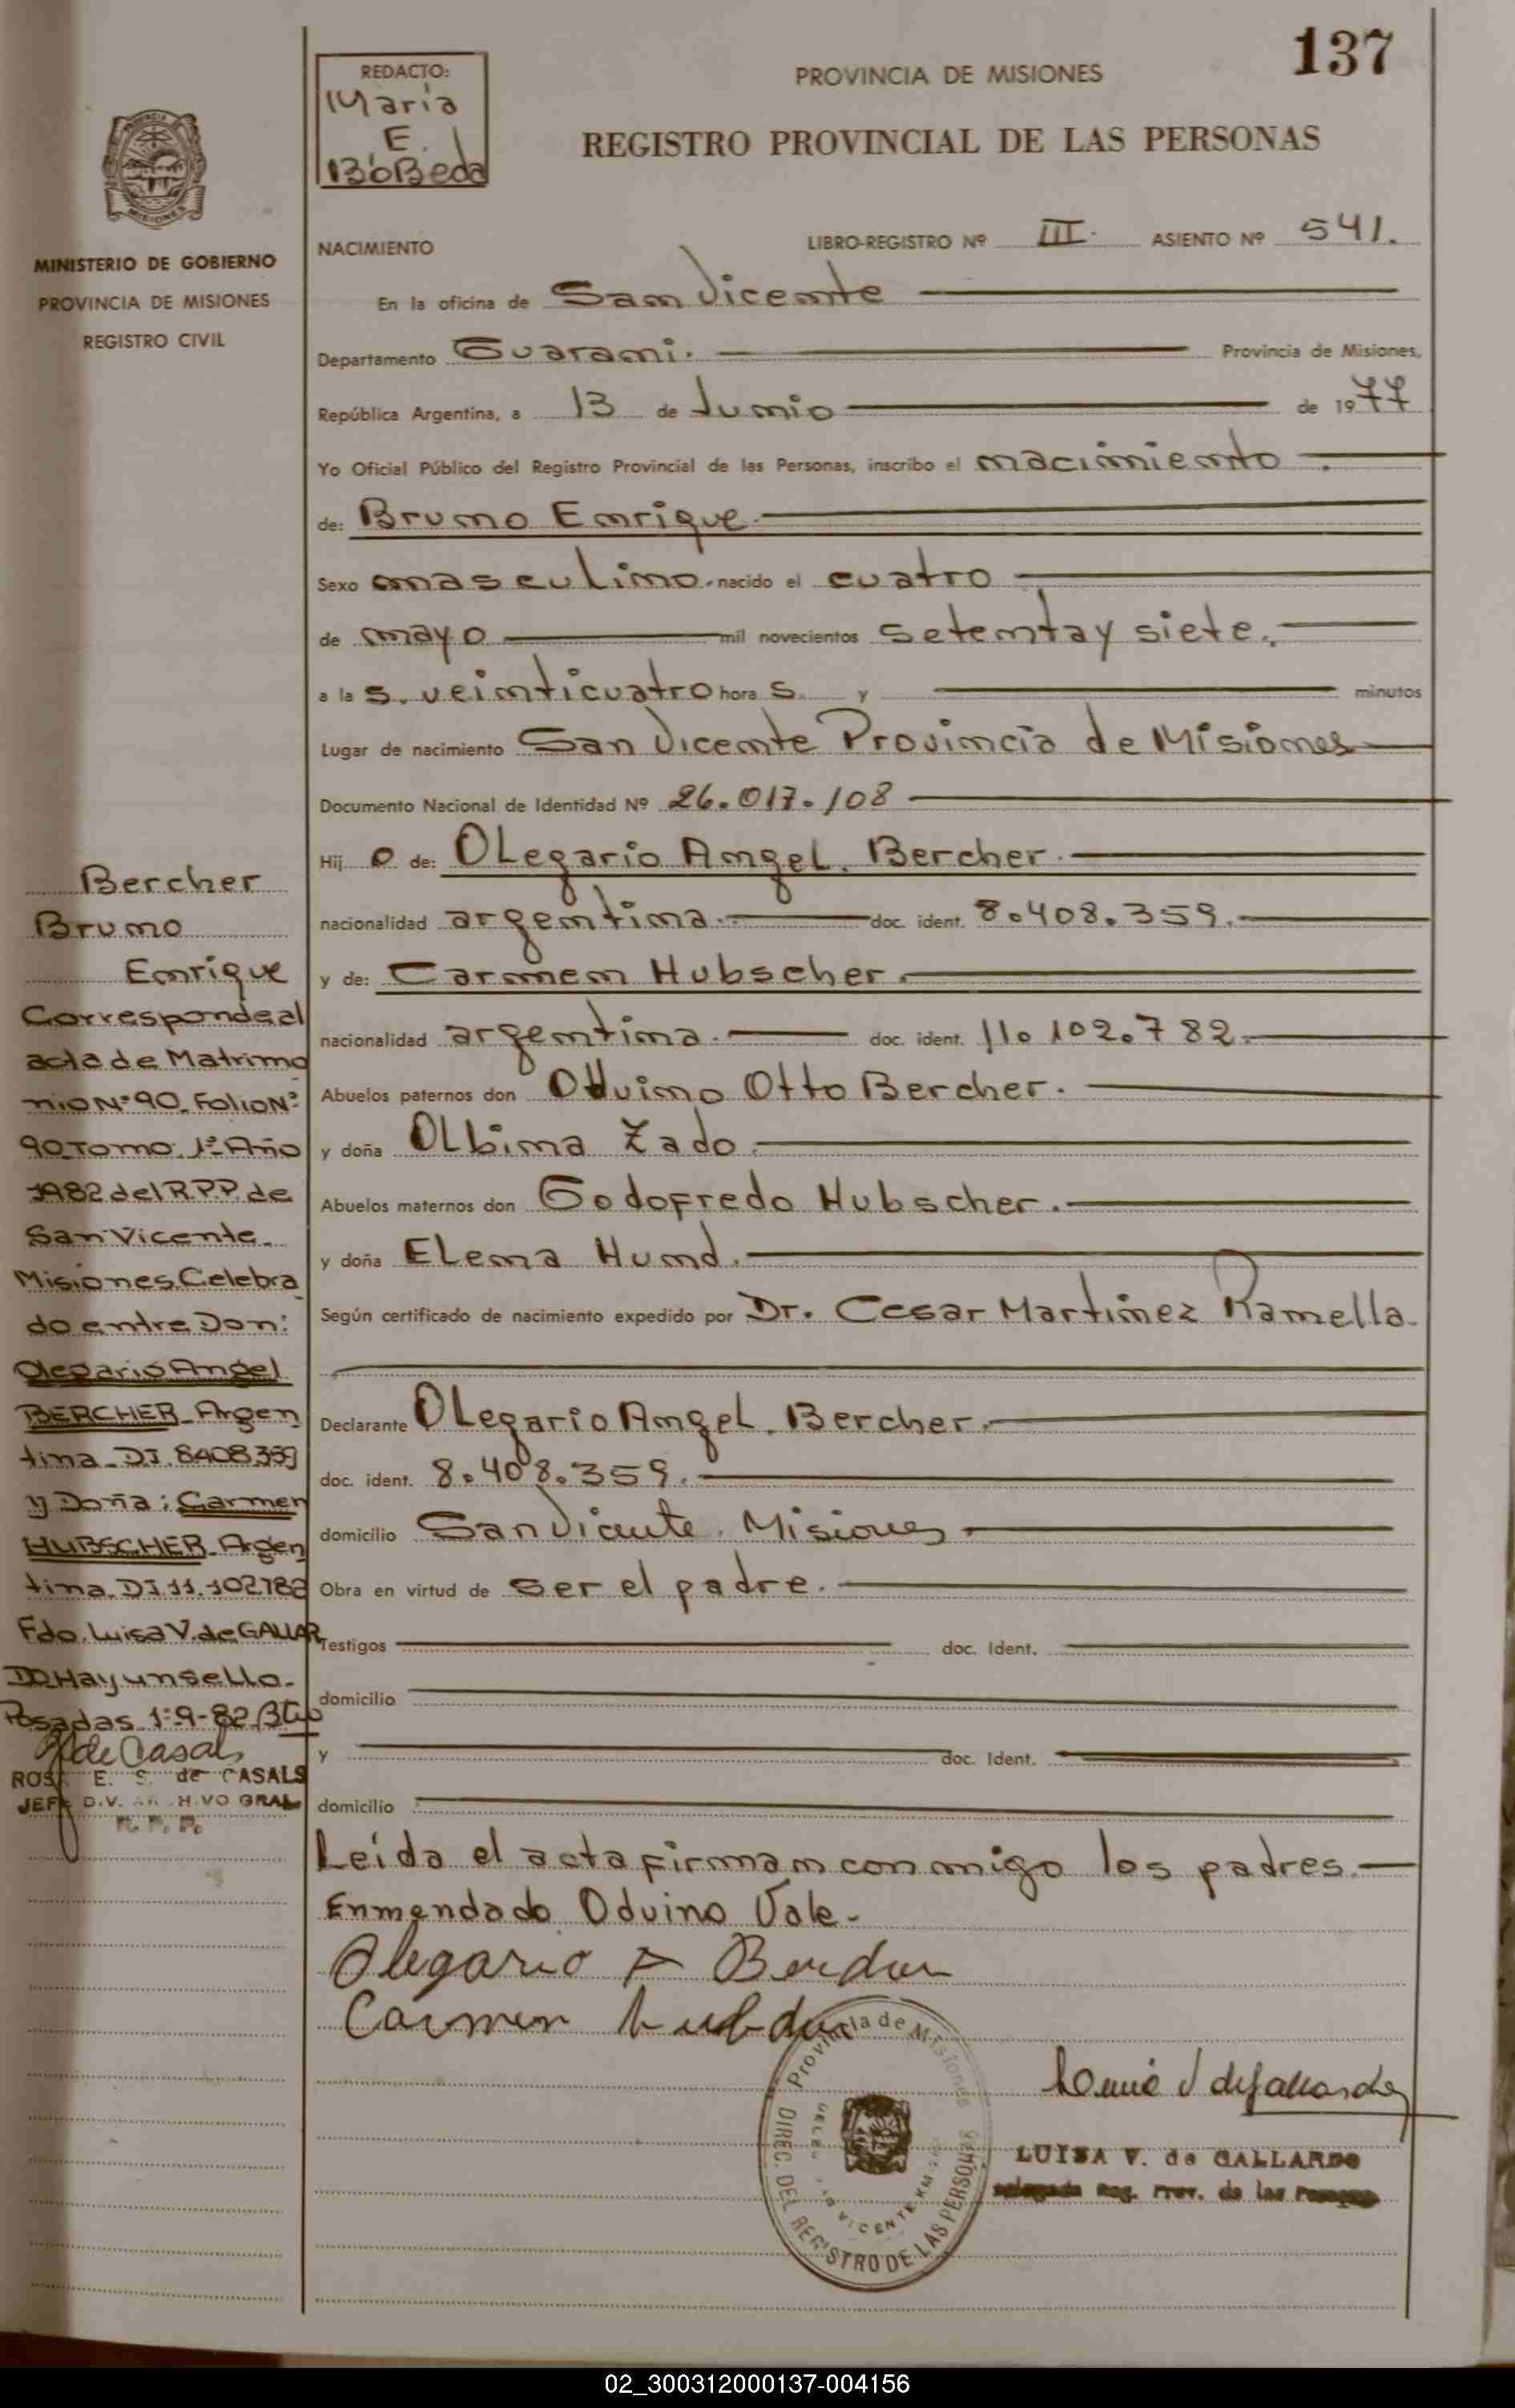 137
REDACTO:
Maria
E.
BóBeda
PROVINCIA DE MISIONES
REGISTRO PROVINCIAL DE LAS PERSONAS
PROVINCIA DE
MISIONES
MINISTERIO DE GOBIERNO
PROVINCIA DE MISIONES
REGISTRO CIVIL
NACIMIENTO
LIBRO-REGISTRO Nº III. ASIENTO Nº 541.
En la oficina de San Vicente
Departamento Guarani. Provincia de Misiones,
República Argentina, a 13 de Junio de 1977
Yo Oficial Público del Registro Provincial de las Personas, inscribo el nacimiento.
de: Bruno Enrique.
Sexo masculino. nacido el cuatro
de mayo mil novecientos setenta y siete.
a la s. veinticuatro hora s. y minutos
Lugar de nacimiento San Vicente Provincia de Misiones
Documento Nacional de Identidad Nº 26.017.108
Hij o de: Olegario Angel. Bercher.
nacionalidad argentina. doc. ident. 8.408.359.
y de: Carmen Hubscher.
nacionalidad argentina. doc. ident. 11.102.782.
Abuelos paternos don Oduino Otto Bercher.
y doña Olbina Zado.
Abuelos maternos don Godofredo Hubscher.
y doña Elena Hund.
Según certificado de nacimiento expedido por Dr. Cesar Martinez Ramella.
Declarante Olegario Angel. Bercher.
doc. ident. 8.408.359.
domicilio San Vicente. Misiones
Obra en virtud de ser el padre.
Testigos doc. Ident.
domicilio
y doc. Ident.
domicilio
Leída el acta firman conmigo los padres.
Enmendado Oduino Vale.
Olegario A Bercher
Carmen Hubscher
Bercher
Bruno
Enrique
Corresponde al
acta de Matrimo
nio Nº 90. Folio Nº
90 Tomo. 1º Año
1982 del R.P.P. de
San Vicente.
Misiones. Celebra
do entre Don:
Olegario Angel
BERCHER. Argen
tina. DI. 8408359
y Doña: Carmen
HUBSCHER. Argen
tina. DI. 11.102782
Fdo. Luisa V. de GALLAR
DO Hay un sello.
Posadas 1º-9-82
de Casals
ROSA E. S. de CASALS
JEFE DIV. ARCHIVO GRAL
R. P. P.
Provincia de Misiones
DIREC. DEL REGISTRO DE LAS PERSONAS
VICENTE KM.
Luisa V de Gallardo
LUISA V. de GALLARDO
Delegada Reg. Prov. de las Personas
02_300312000137-004156